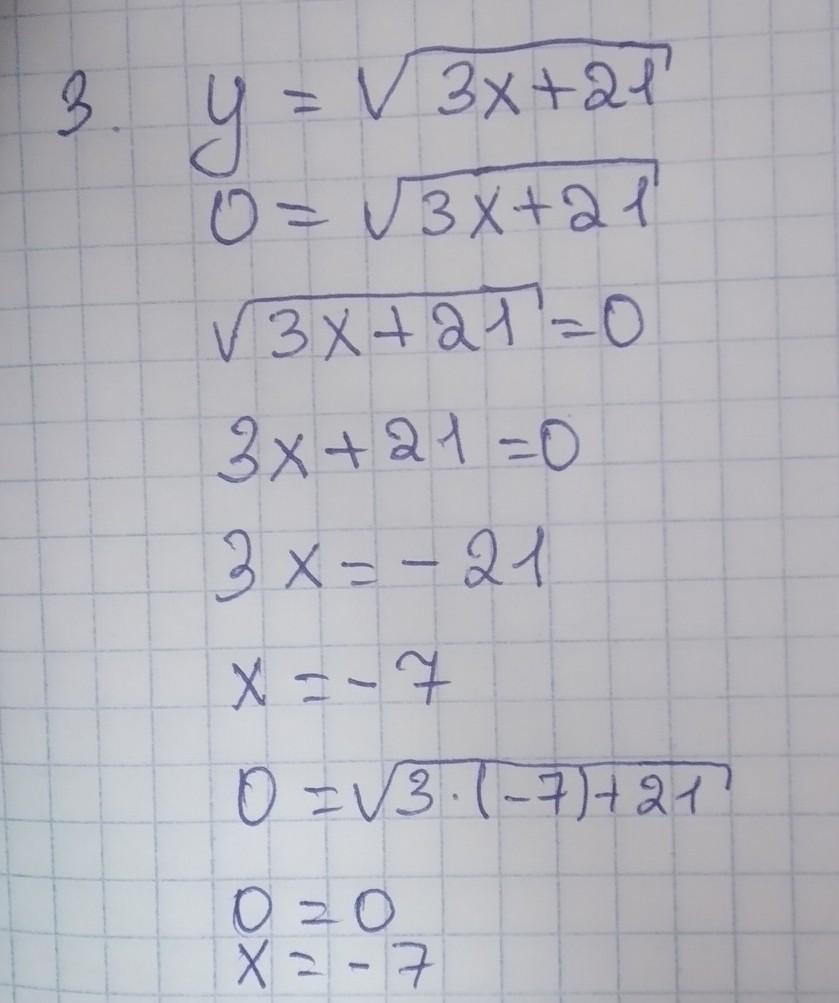 3. y = √(3x+21)
0 = √(3x+21)
√(3x+21) = 0
3x+21 = 0
3x = -21
x = -7
0 = √(3·(-7)+21)
0 = 0
x = -7